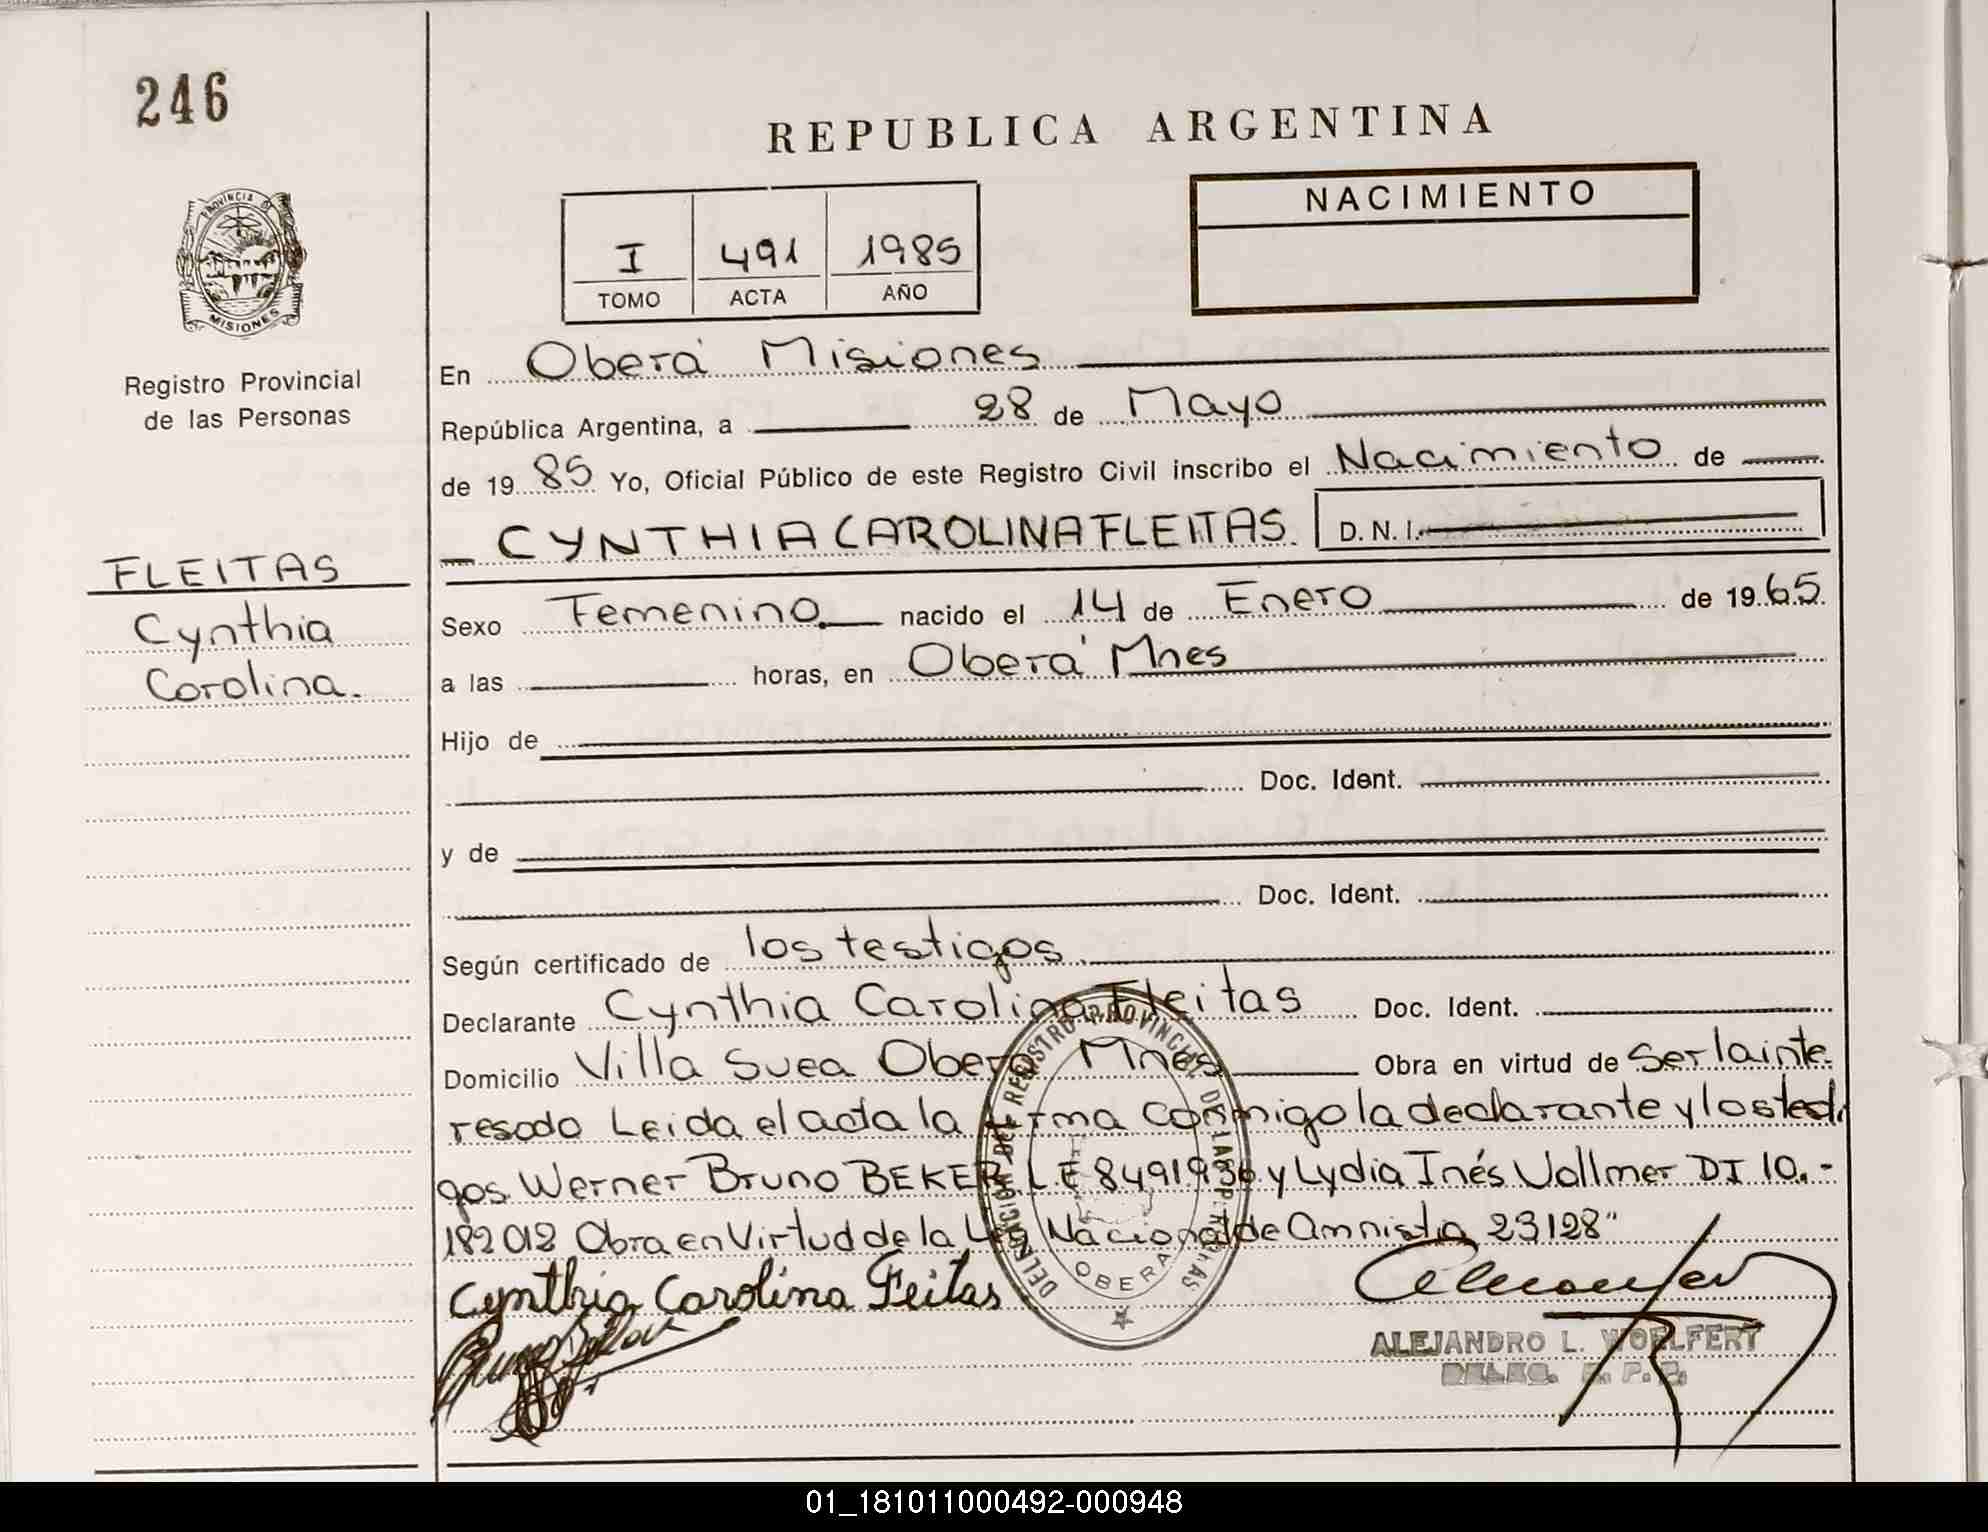 246
REPUBLICA ARGENTINA
PROVINCIA DE
MISIONES
Registro Provincial
de las Personas
I 491 1985
TOMO ACTA AÑO
NACIMIENTO
En Oberá Misiones
República Argentina, a 28 de Mayo
de 19 85 Yo, Oficial Público de este Registro Civil inscribo el Nacimiento de
CYNTHIA CAROLINA FLEITAS D. N. I.
FLEITAS
Cynthia
Carolina.
Sexo Femenino nacido el 14 de Enero de 19 65
a las horas, en Oberá Mnes
Hijo de
Doc. Ident.
y de
Doc. Ident.
Según certificado de los testigos
Declarante Cynthia Carolina Fleitas Doc. Ident.
Domicilio Villa Svea Oberá Mnes Obra en virtud de Ser la inte
resada Leida el acta la firma conmigo la declarante y los testi
gos Werner Bruno BEKER LE 8491936 y Lydia Inés Vollmer DI 10.-
182012 Obra en Virtud de la Ley Nacional de Amnistia 23128"
Cynthia Carolina Fleitas
DELEGACION DEL REGISTRO PROVINCIAL DE LAS PERSONAS
OBERA
ALEJANDRO L. WOELFERT
DELEG. R. P. P.
01_181011000492-000948